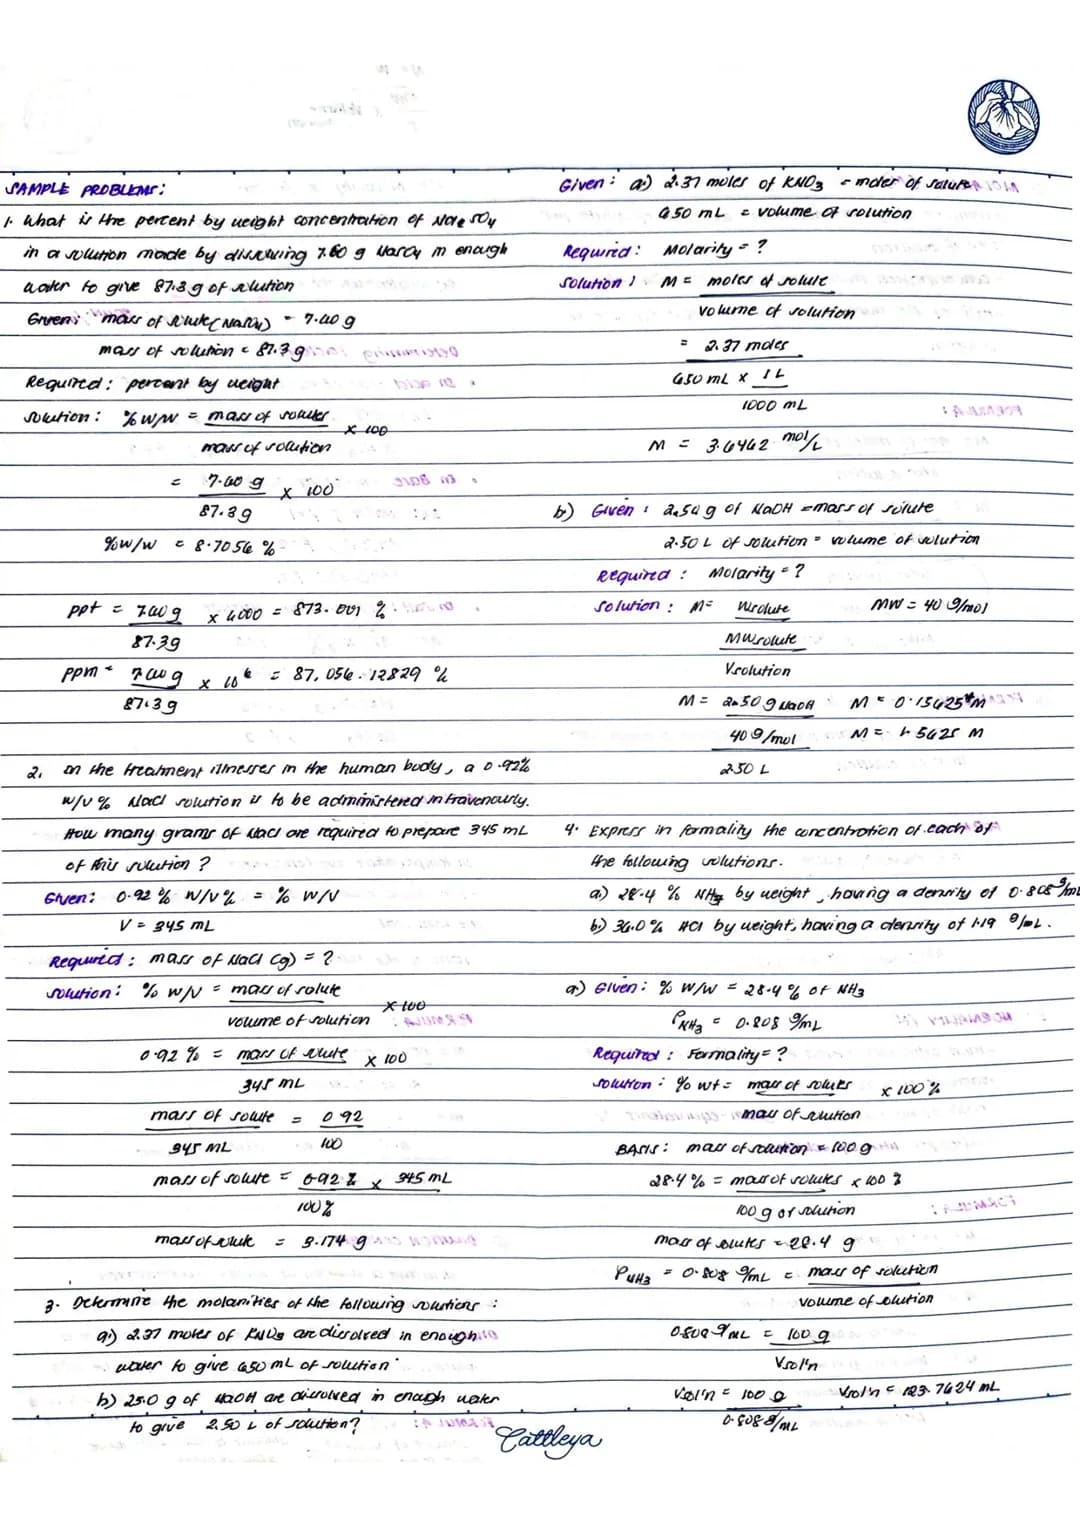 SAMPLE PROBLEMS:
1. What is the percent by weight concentration of Na2SO4
in a solution made by dissolving 7.60 g Na2SO4 in enough
water to give 87.3 g of solution
Given: mass of solute (Na2SO4) = 7.60 g
mass of solution = 87.3 g
Required: percent by weight
solution: % w/w = mass of solutes
mass of solution
x 100
= 7.60 g
87.3 g
x 100
% w/w = 8.7056 %
ppt = 7.60 g
87.3 g
x 1000 =
ppm = 7.60 g
87.3 g
x 10⁶ = 87,056.12829 %
2. In the treatment illnesses in the human body, a 0.92%
w/v % NaCl solution is to be administered intravenously.
How many grams of NaCl are required to prepare 345 mL
of this solution?
Given: 0.92 % w/v % = % w/v
V = 345 mL
Required: mass of NaCl (g) = ?
solution: % w/v = mass of solute
volume of solution
x 100
0.92 % = mass of solute
345 mL
x 100
mass of solute
345 mL
= 0.92
100
mass of solute = 0.92 % x 345 mL
100 %
mass of solute = 3.174 g
3. Determine the molarities of the following solutions:
a) 2.37 moles of KNO3 are dissolved in enough
water to give 650 mL of solution
b) 25.0 g of NaOH are dissolved in enough water
to give 2.50 L of solution?
Given: a) 2.37 moles of KNO3 = moles of solute
650 mL = volume of solution
Required: Molarity = ?
solution: M = moles of solute
volume of solution
= 2.37 moles
650 mL x 1 L
1000 mL
M = 3.6462 mol/L
b) Given: g of NaOH = mass of solute
2.50 L of solution = volume of solution
Required: Molarity = ?
solution: M = Wsolute
MWsolute
Vsolution
MW = 40 g/mol
M = g NaOH
40 g/mol
2.50 L
M = 0.15625 M
M = 1.5625 M
4. Express in formality the concentration of each of
the following solutions.
a) 28.4 % NH3 by weight, having a density of 0.808 g/mL
b.) 36.0 % HCl by weight, having a density of 1.19 g/mL.
a) Given: % w/w = 28.4 % of NH3
ρNH3 = 0.808 g/mL
Required: Formality = ?
solution: % wt = mass of solutes
mass of solution
x 100 %
BASIS: mass of solution = 100 g
28.4 % = mass of solutes x 100 %
100 g of solution
mass of solutes = 28.4 g
ρNH3 = 0.808 g/mL = mass of solution
volume of solution
0.808 g/mL = 100 g
Vsol'n
Vsol'n = 100 g
0.808 g/mL
Vsol'n = 123.7624 mL
Cattleya